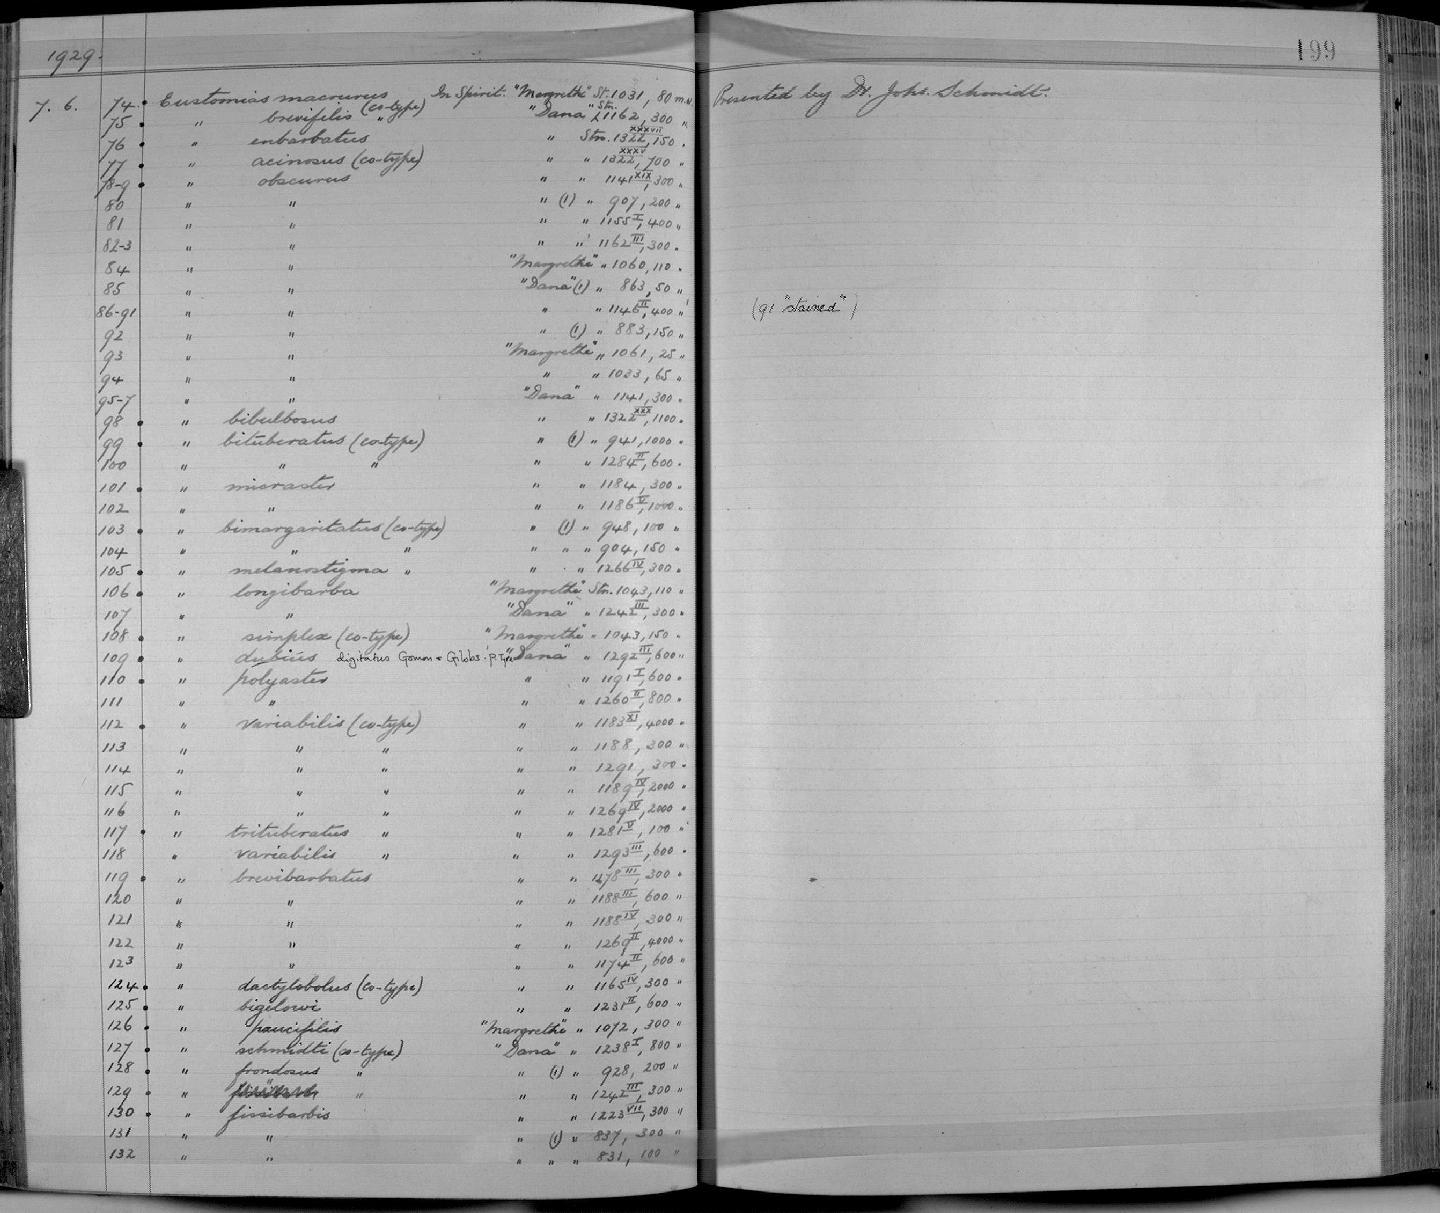 1929.
199
7. 6. 74 Eustomias macrurus In Spirit. "Margrethe" St. 1031, 80 m.w. Presented by Dr. Johs. Schmidt.
75 " brevifilis (co-type) "Dana" Stn. 1162, 300 "
76 " enbarbatus " Stn. 1322 XXXVII, 150 "
77 " acinosus (co-type) " " 1322 XXXV, 700 "
78-9 " obscurus " " 1141 XIX, 300 "
80 " " " (1) " 907, 200 "
81 " " " " 1155 I, 400 "
82-3 " " " " 1162 III, 300 "
84 " " "Margrethe" " 1060, 110 "
85 " " "Dana" (1) " 863, 50 "
86-91 " " " " 1146 II, 400 " (91 "stained")
92 " " " (1) " 883, 150 "
93 " " "Margrethe" " 1061, 25 "
94 " " " " 1033, 65 "
95-7 " " "Dana" " 1141, 300 "
98 " bibulbosus " " 1322 XXX, 1100 "
99 " bituberatus (co-type) " (1) " 941, 1000 "
100 " " " " " 1284 II, 600 "
101 " micraster " " 1184, 300 "
102 " " " " 1186 V, 1000 "
103 " bimargaritatus (co-type) " (1) " 948, 100 "
104 " " " " " " 904, 150 "
105 " melanostigma " " " 1266 IV, 300 "
106 " longibarba "Margrethe" Stn. 1043, 110 "
107 " " "Dana" " 1242 III, 300 "
108 " simplex (co-type) "Margrethe" " 1043, 150 "
109 " dubius digitatus Gomon & Gibbs. P. Type "Dana" " 1292 III, 600 "
110 " polyaster " " 1191 I, 600 "
111 " " " " 1260 II, 800 "
112 " variabilis (co-type) " " 1183 XI, 4000 "
113 " " " " " 1188, 300 "
114 " " " " " 1291, 300 "
115 " " " " " 1189 IV, 2000 "
116 " " " " " 1269 IV, 2000 "
117 " trituberatus " " " 1281 V, 100 "
118 " variabilis " " " 1293 III, 600 "
119 " brevibarbatus " " 1178 III, 300 "
120 " " " " 1188 III, 600 "
121 " " " " 1188 IV, 300 "
122 " " " " 1269 II, 4000 "
123 " " " " 1174 II, 600 "
124 " dactylobolus (co-type) " " 1165 IV, 300 "
125 " bigelowi " " 1231 II, 600 "
126 " paucifilis "Margrethe" " 1072, 300 "
127 " schmidti (co-type) "Dana" " 1238 I, 800 "
128 " frondosus " " (1) " 928, 200 "
129 " " " " 1242 III, 300 "
130 " fissibarbis " " 1223 VII, 300 "
131 " " " (1) " 837, 300 "
132 " " " " " 831, 100 "